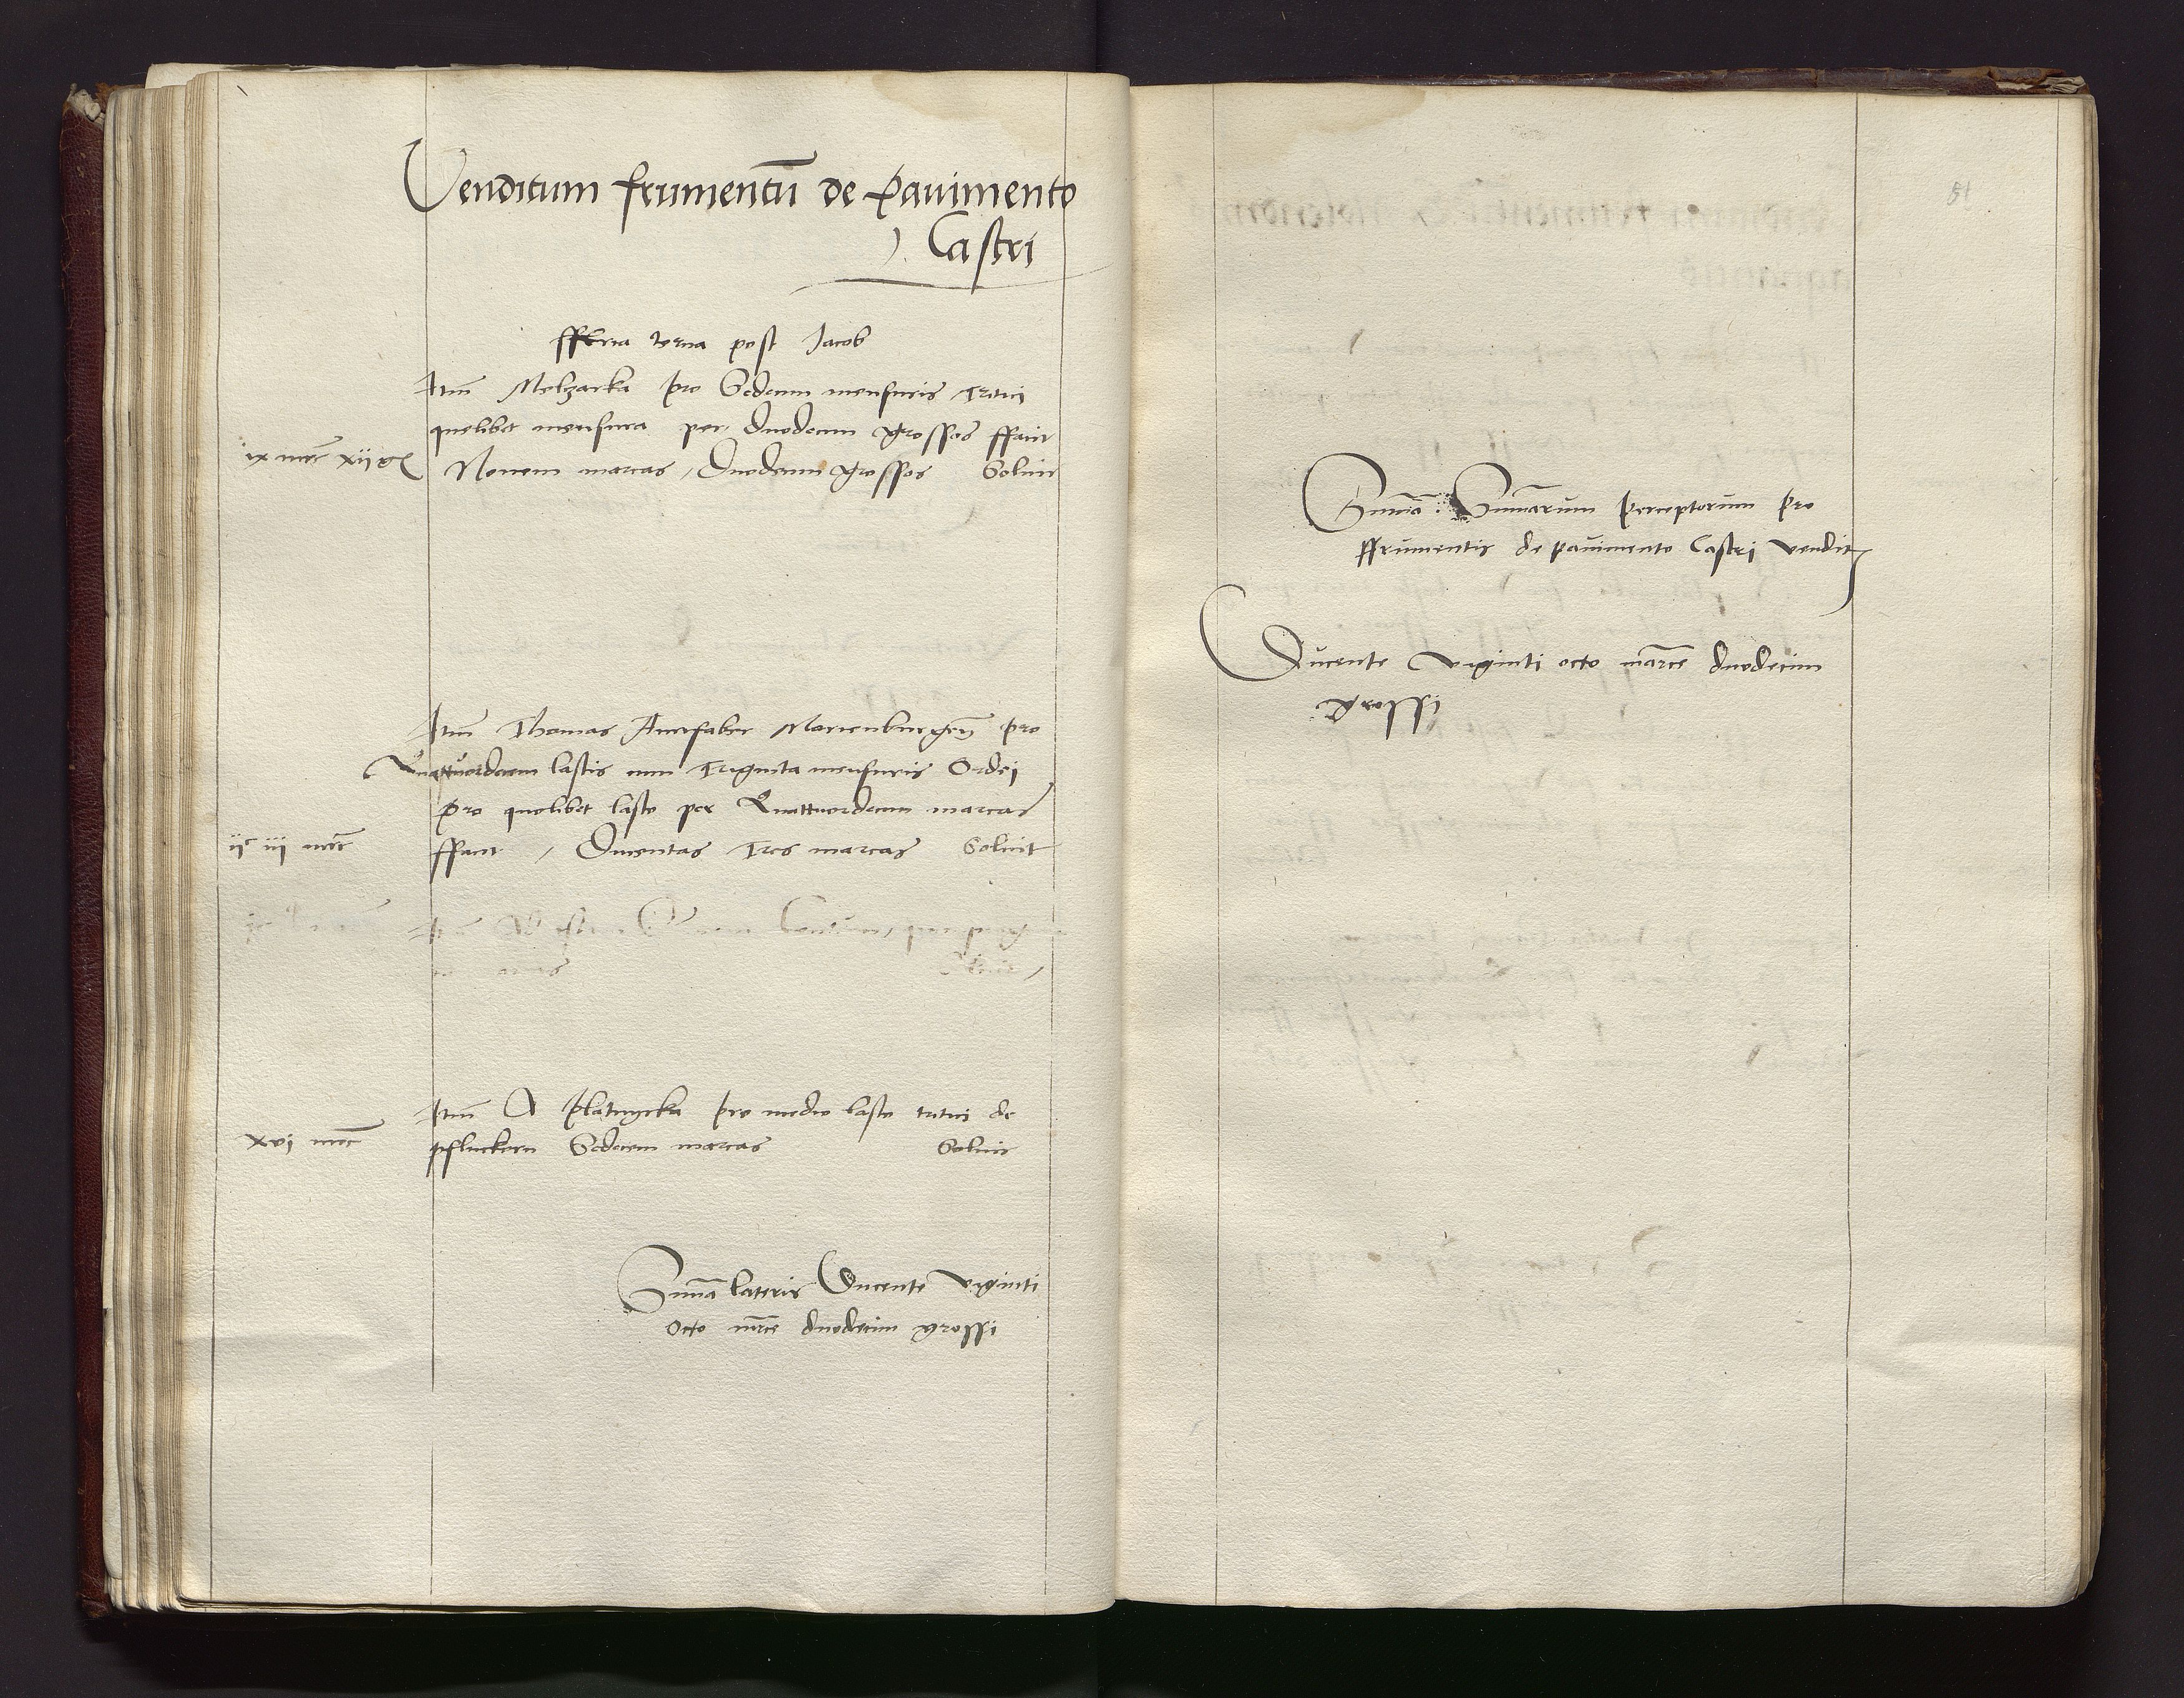 Venditum frumentū de Pavimento
Castri
fferia tercia post Jacob
Itm̄ Melzacka pro Sedecim mensuris Tritici
quelibet mensura per duodecim grossos ffacit
ix mrc̄ xii gͬ Novem marcas, Duodecim grossos Solvit
Itm̄ Thomas Aurifaber Marienburgen̄ pro
Quattuordecim lastis cum Triginta mensuris Ordei
pro quolibet lasto per Quattuordecim marcas
iiᶜ iii mrc̄ ffacit, Ducentas Tres marcas Solvit
Itm̄
Solvit
Itm̄ A Plastwycka pro medio lasto tritici de
xvi mrc̄ pfluckorn Sedecim marcas Solvit
Sum̄a lateris Ducente viginti
octo mrce duodecim grossi
51
Sum̄a Sum̄arum perceptorum pro
ffrumentis de pavimento Castri vendit
Ducente viginti octo marce duodecim
grossi